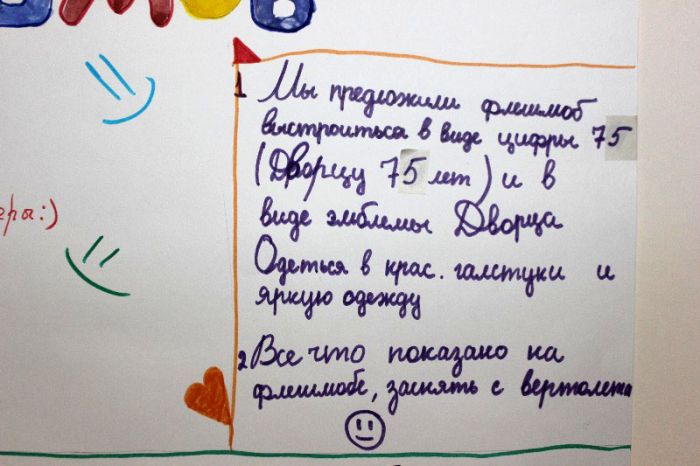 1 Мы предложили флешмоб
выстроиться в виде цифры 75
(Дворцу 75 лет) и в
виде эмблемы Дворца
Одеться в крас. галстуки и
яркую одежду
2 Все что показано на
флешмобе, заснять с вертолета
:)